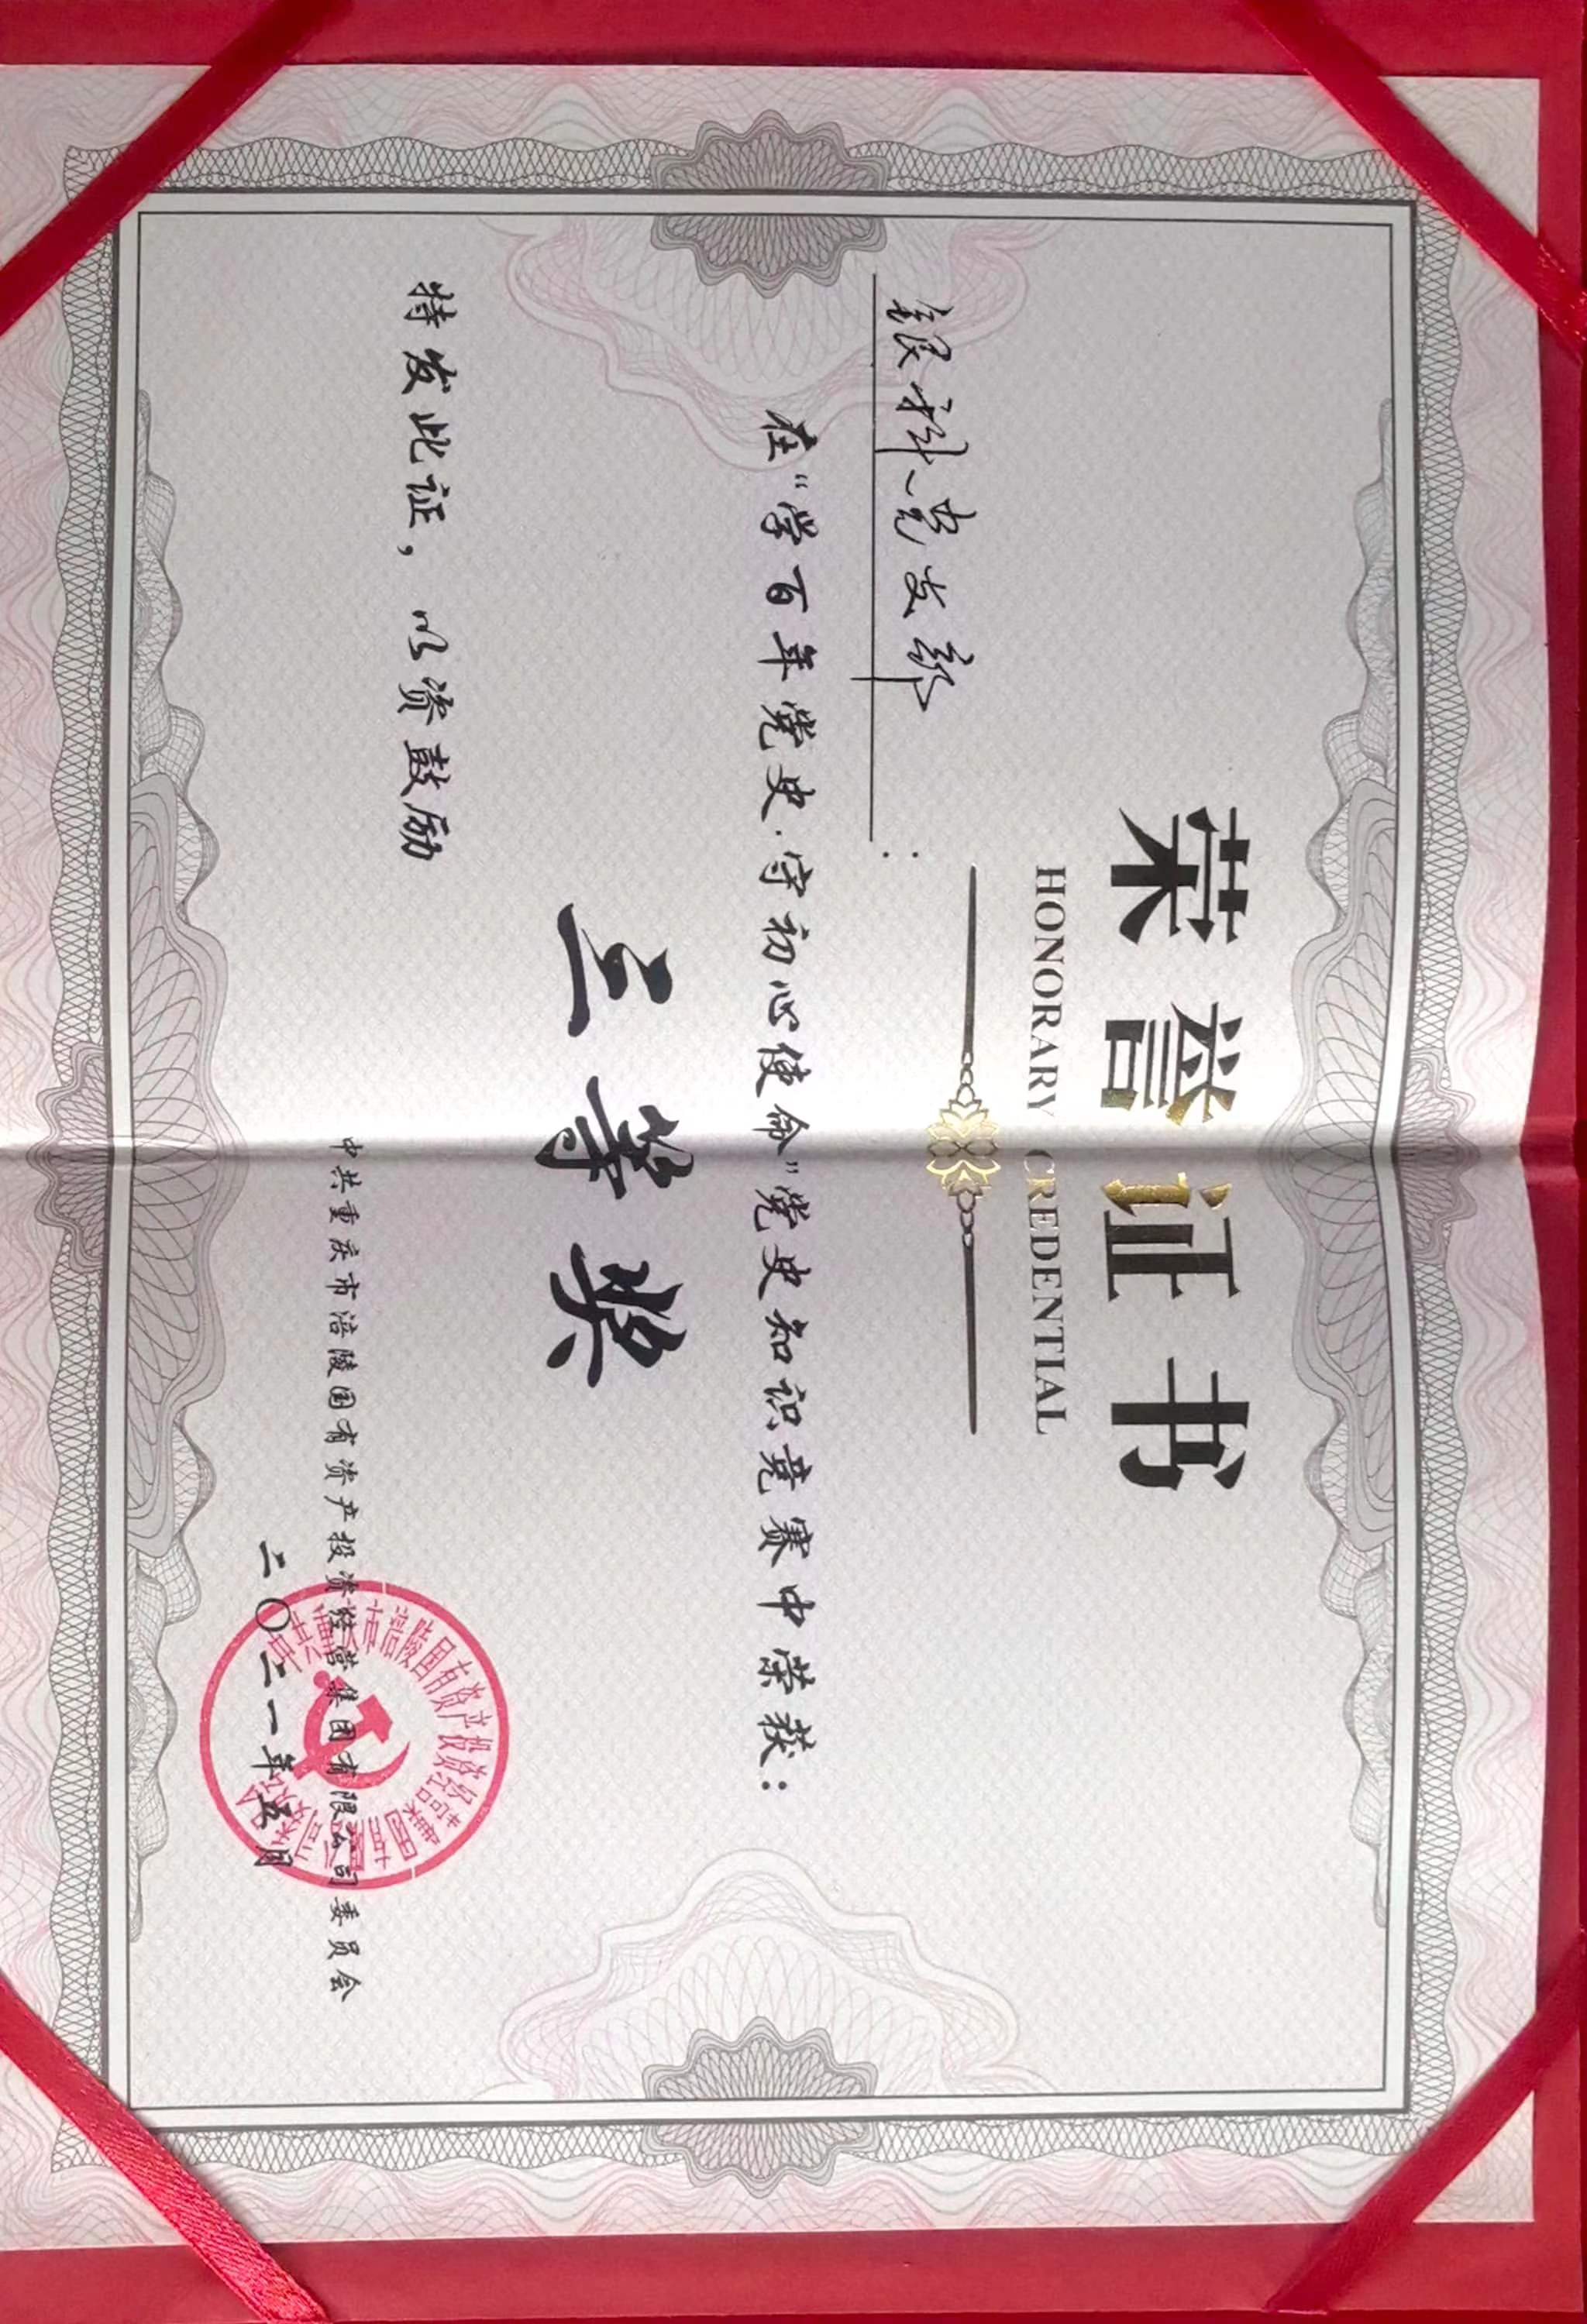 荣誉证书
HONORARY CREDENTIAL
银科党支部：
在“学百年党史·守初心使命”党史知识竞赛中荣获：
三等奖
特发此证，以资鼓励
中共重庆市涪陵国有资产投资经营集团有限公司委员会
二〇二一年五月
中共重庆市涪陵国有资产投资经营集团有限公司委员会